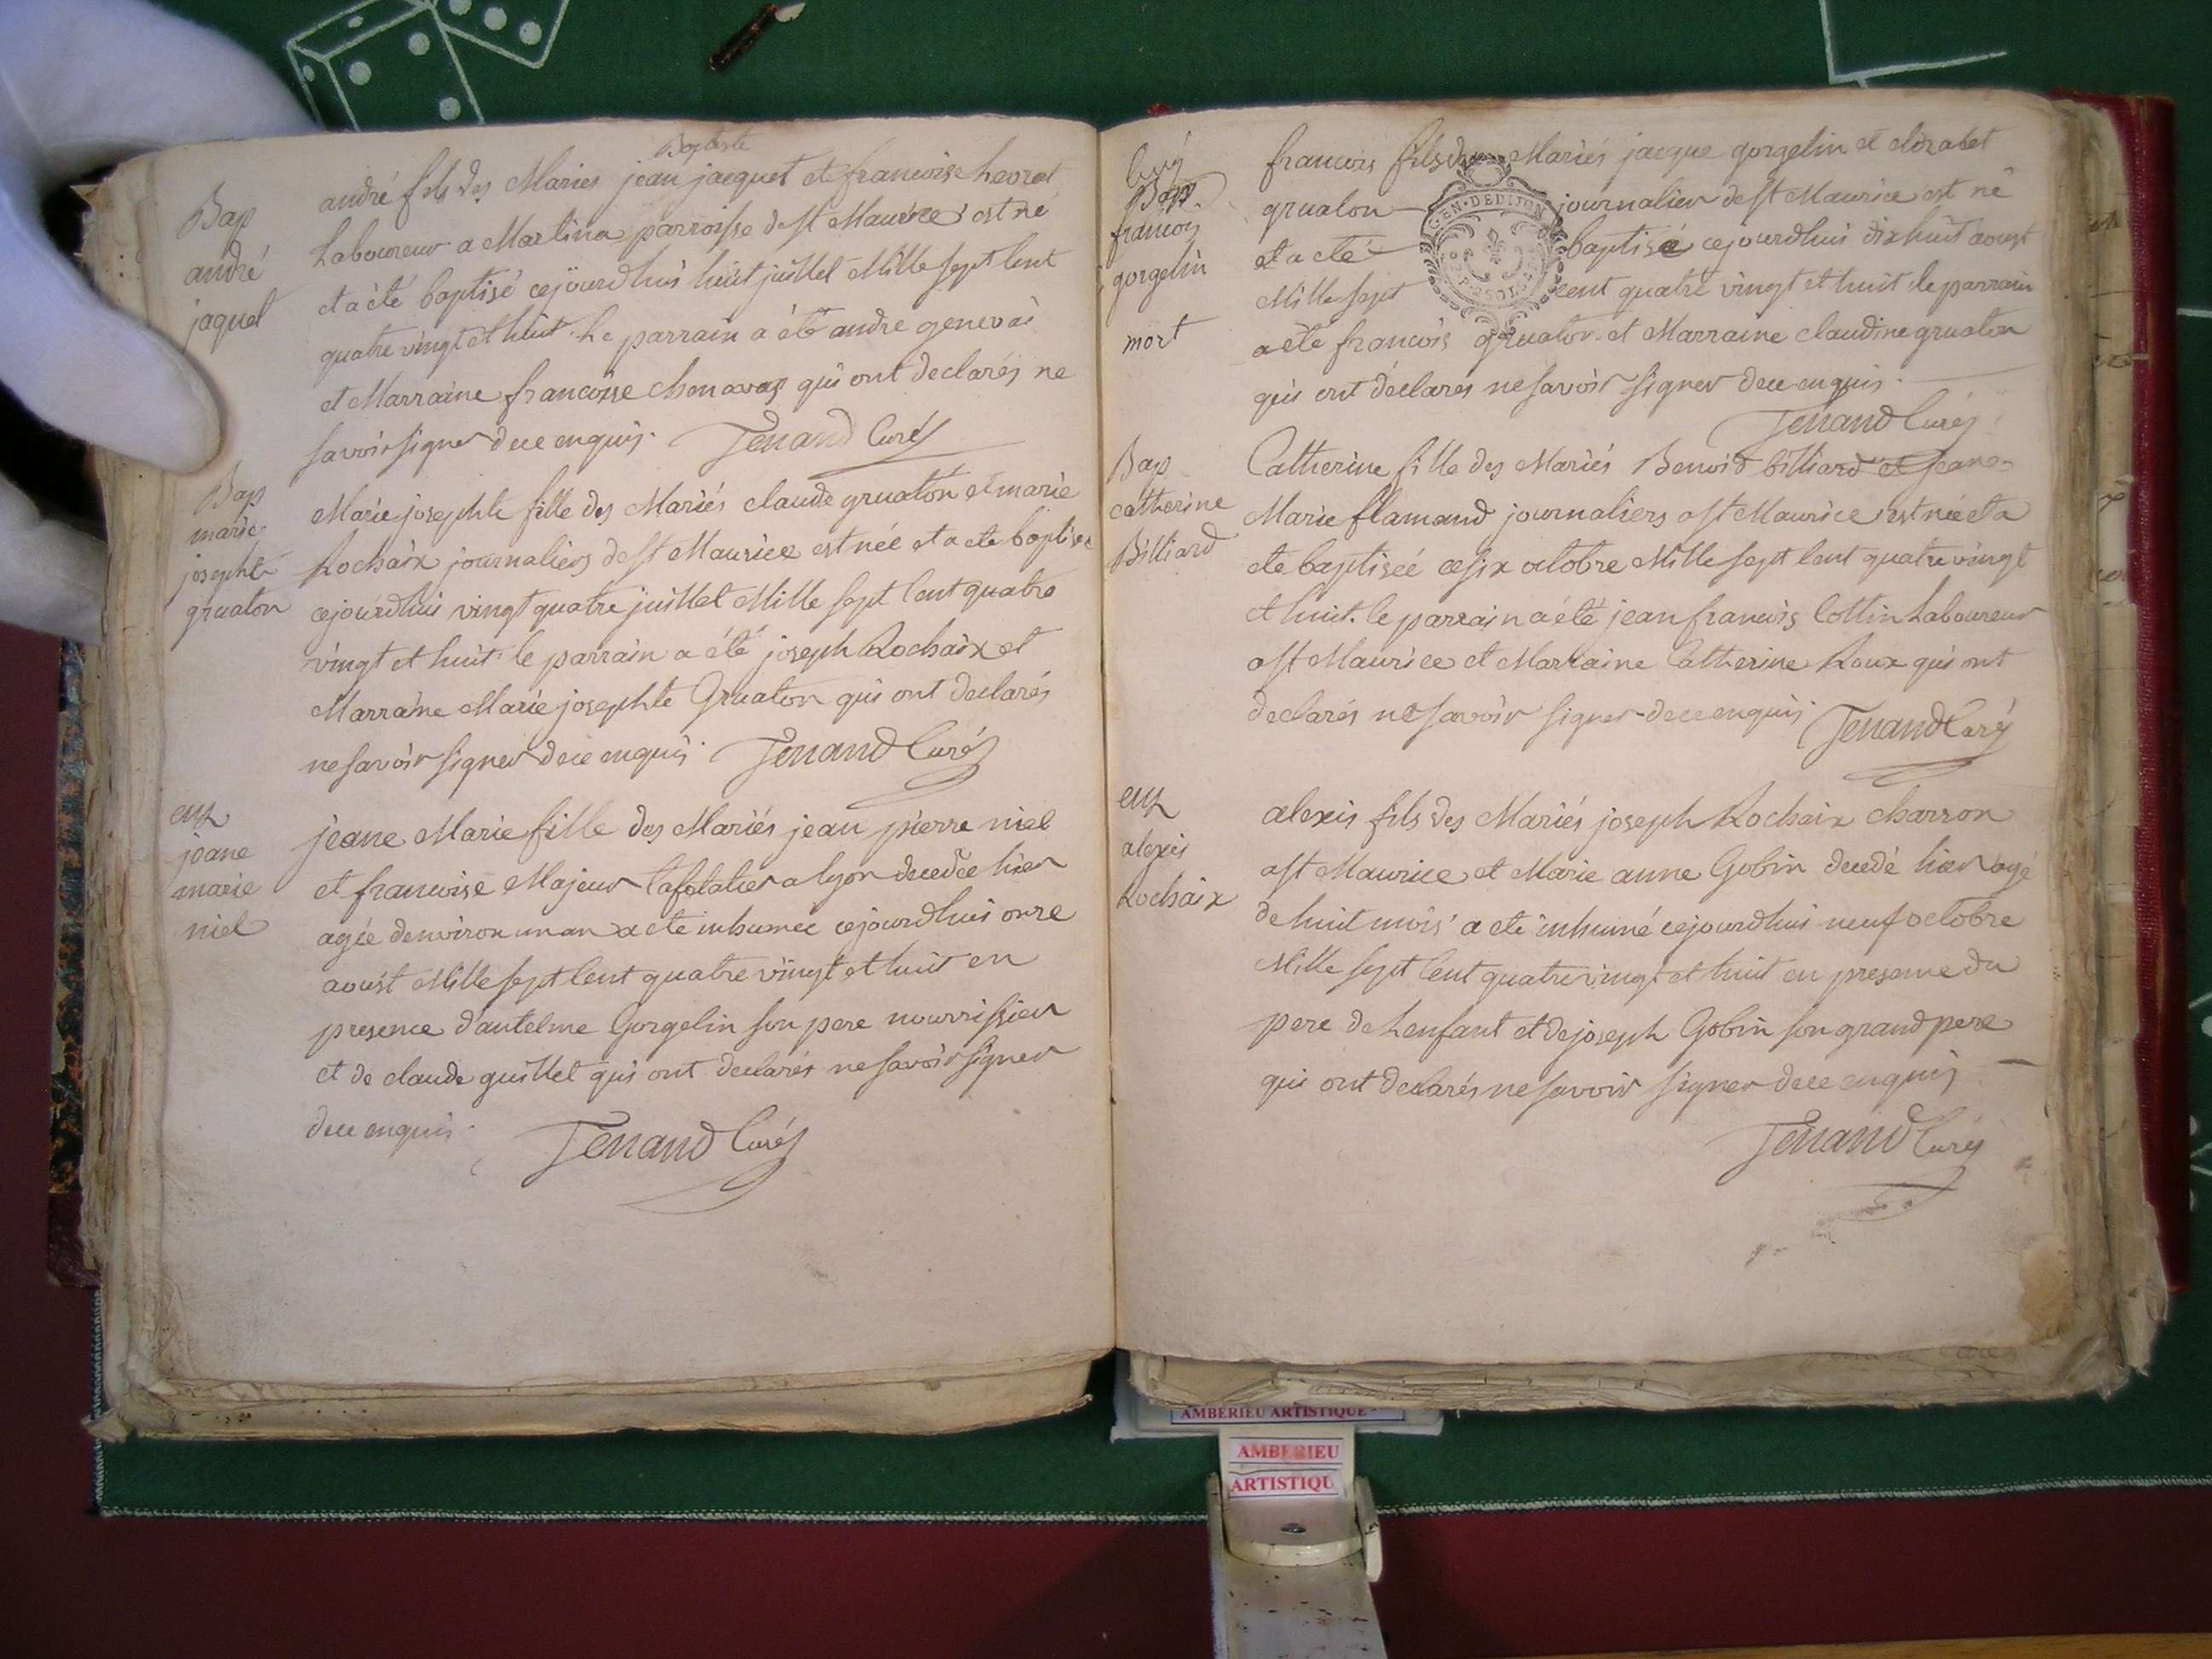 Baptiste
Bap
andré
jaquet
andré fils des Maries jean jacquet et francoise hevrat
Laboureur a Martina parroisse de st Maurice est né
et a été baptisé cejourdhui huit juillet Mille sept Cent
quatre vingt et huit. Le parrain a été andre genevai
et Marraine francoise chenavas qui ont declarés ne
savoir signer de ce enquis. Tenand Curé
Bap
marie
josephte
gruaton
Marie josephte fille des Mariés claude gruaton et marie
Rochaix journaliers de st Maurice est née et a ete baptisée
cejourdhui vingt quatre juillet Mille sept Cent quatre
vingt et huit. le parrain a été joseph Rochaix et
Marraine Marie josephte Gruaton qui ont declarés
ne savoir signer de ce enquis. Tenand Curé
ent
jeane
marie
niel
jeane Marie fille des Mariés jean pierre niel
et francoise Majeur tafetatier a lyon decedée hier
agée denviron un an a ete inhumée cejourdhui onze
aoust Mille sept Cent quatre vingt et huit en
presence d'antelme Gorgelin son pere nourrissier
et de claude guillet qui ont declarés ne savoir signer
de ce enquis. Tenand Curé
Bap
francois
gorgelin
mort
francois fils des Mariés jacque gorgelin et elizabet
gruaton journalier de st Maurice est né
et a eté baptisé cejourdhui dix huit aoust
Mille sept cent quatre vingt et huit. le parrain
a été francois gruaton et Marraine claudine gruaton
qui ont déclarés ne savoir signer de ce enquis.
Tenand Curé
GEN. DE DIJON
Bap
catherine
Billiard
Catherine fille des Mariés Benoid billiard et jeane
Marie flamand journaliers a st Maurice est née et a
eté baptisée ce six octobre Mille sept Cent quatre vingt
et huit. le parrain a été jean francois Cottin Laboureur
a st Maurice et Marraine Catherine Roux qui ont
declarés ne savoir signer de ce enquis. Tenand Curé
ent
alexis
Rochaix
alexis fils des Mariés joseph Rochaix charron
a st Maurice et Marie anne Gobin decedé hier agé
de huit mois a eté inhumé cejourdhui neuf octobre
Mille sept Cent quatre vingt et huit en presence du
pere de Lenfant et de joseph Gobin son grand pere
qui ont declarés ne savoir signer de ce enquis
Tenand Curé
AMBERIEU ARTISTIQUE
AMBERIEU
ARTISTIQU